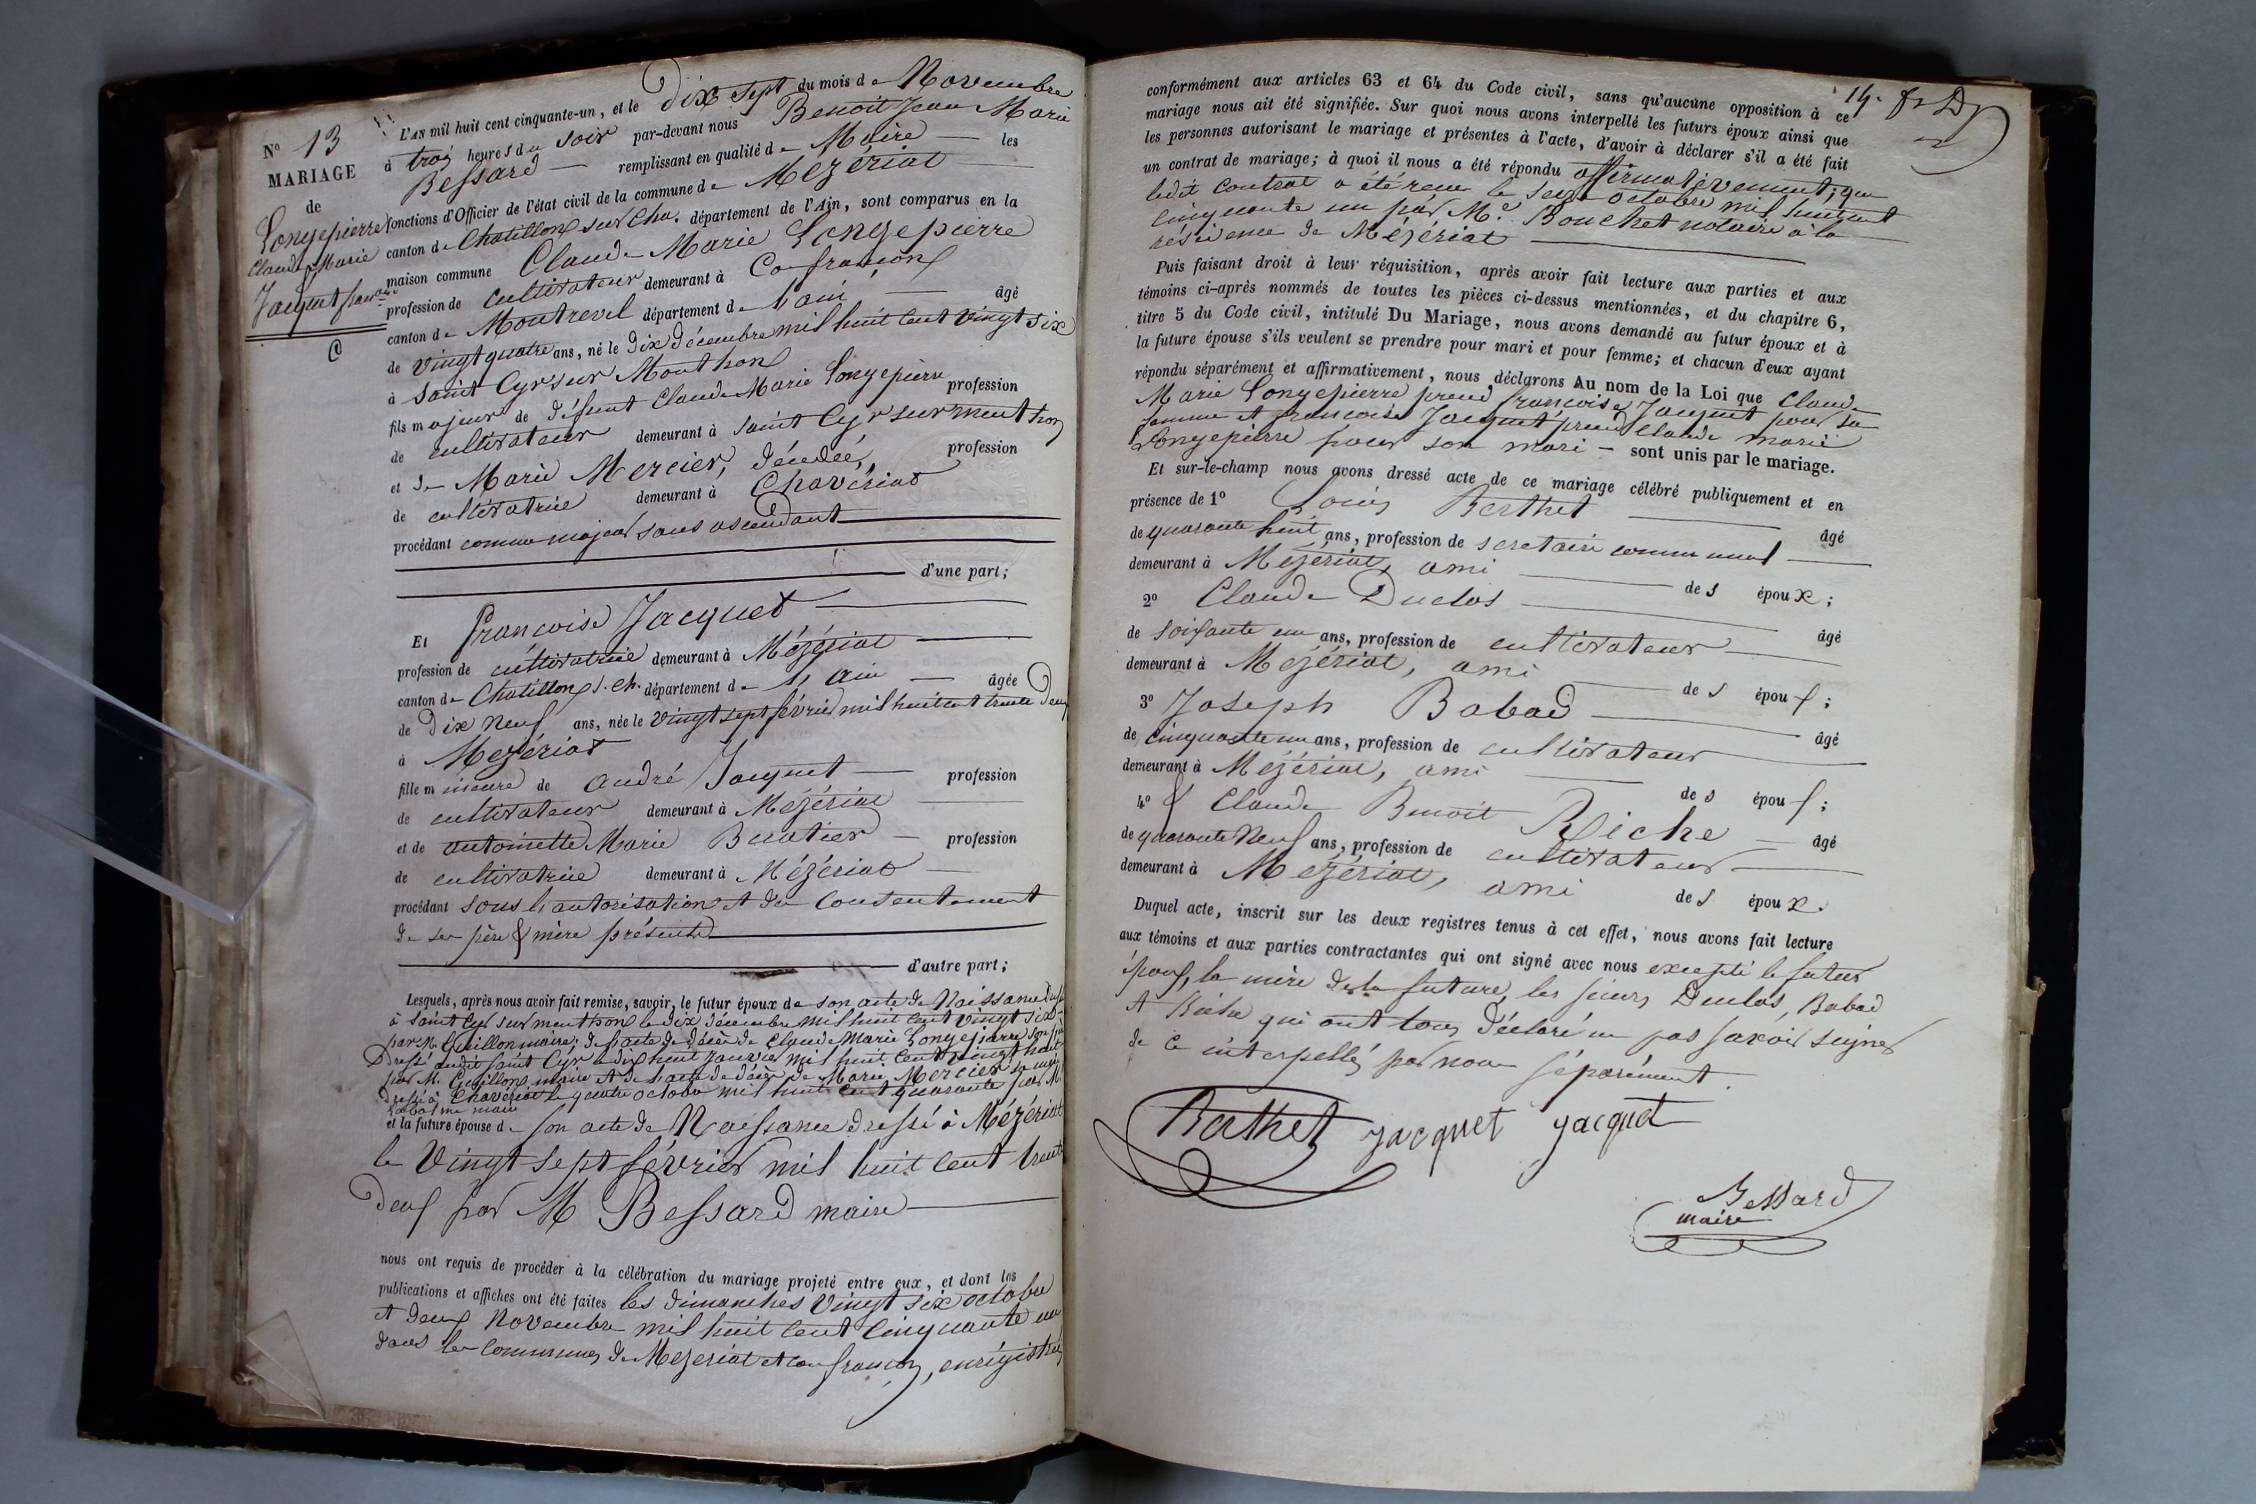 N° 13
MARIAGE
de
Longepierre
Claude Marie
Jacquet
L'AN mil huit cent cinquante-un, et le Dix Sept du mois de Novembre
à trois heures du soir par-devant nous Benoit Jean Marie
Bessard remplissant en qualité de Maire les
fonctions d'Officier de l'état civil de la commune de Mézériat
canton de Chatillon sur Cha. département de l'Ain, sont comparus en la
maison commune Claude Marie Longepierre
profession de cultivateur demeurant à Confrançon
canton de Montrevel département de l'ain âgé
de vingt quatre ans, né le dix décembre mil huit cent vingt six
à Saint Cyr sur Monthon
fils majeur de défunt Claude Marie Longepierre profession
de cultivateur demeurant à saint Cyr sur menthon
et de Marie Mercier, décédée, profession
de cultivatrice demeurant à Chavériat
procédant comme majeur sans ascendant
d'une part;
Et françoise Jacquet
profession de cultivatrice demeurant à Mézériat
canton de Chatillon s. ch. département de l'ain âgée
de Dix Neuf ans, née le vingt sept février mil huit cent trente Deux
à Mezériat
fille mineure de andré Jacquet profession
de cultivateur demeurant à Mézériat
et de antoinette Marie Buatier profession
de cultivatrice demeurant à Mézériat
procédant sous l'autorisation et du Consentement
de ses père & mère présents
d'autre part;
Lesquels, après nous avoir fait remise, savoir, le futur époux de son acte de Naissance Dressé
à Saint Cyr sur menthon le dix décembre mil huit cent vingt six
par M. Guillon maire; de l'acte de décès de Claude Marie Longepierre son père
Dressé audit Saint Cyr le dix huit janvier mil huit cent vingt huit
par M. Guillon maire et de l'acte de décès de Marie Mercier sa mère
Dressé à Chaveriat le quatre octobre mil huit cent quarante par M.
maire
et la future épouse de son acte de Naissance dressé à Mézériat
le Vingt sept février mil huit cent trente
deux par M Bessard maire
nous ont requis de procéder à la célébration du mariage projeté entre eux, et dont les
publications et affiches ont été faites les dimanches Vingt six octobre
et deux Novembre mil huit cent Cinquante un
dans les communes de Mezeriat et confrançon, enrégistrées
14.
conformément aux articles 63 et 64 du Code civil, sans qu'aucune opposition à ce
mariage nous ait été signifiée. Sur quoi nous avons interpellé les futurs époux ainsi que
les personnes autorisant le mariage et présentes à l'acte, d'avoir à déclarer s'il a été fait
un contrat de mariage; à quoi il nous a été répondu affirmativement; que
ledit contrat a été reçu le seize octobre mil huit cent
cinquante un par Me Bouchet notaire à la
résidence de Mézériat
Puis faisant droit à leur réquisition, après avoir fait lecture aux parties et aux
témoins ci-après nommés de toutes les pièces ci-dessus mentionnées, et du chapitre 6,
titre 5 du Code civil, intitulé Du Mariage, nous avons demandé au futur époux et à
la future épouse s'ils veulent se prendre pour mari et pour femme; et chacun d'eux ayant
répondu séparément et affirmativement, nous déclarons Au nom de la Loi que Claude
Marie Longepierre prend françoise Jacquet pour sa
femme et françoise Jacquet prend Claude marie
Longepierre pour son mari sont unis par le mariage.
Et sur-le-champ nous avons dressé acte de ce mariage célébré publiquement et en
présence de 1° Louis Berthet âgé
de quarante huit ans, profession de secretaire communal
demeurant à Mézériat, ami des époux;
2° Claude Duclos âgé
de soixante un ans, profession de cultivateur
demeurant à Mézériat, ami des époux;
3° Joseph Babad âgé
de cinquante un ans, profession de cultivateur
demeurant à Mézériat, ami des époux;
4° Claude Benoit Riche âgé
de quarante Neuf ans, profession de cultivateur
demeurant à Mézériat, ami des époux.
Duquel acte, inscrit sur les deux registres tenus à cet effet, nous avons fait lecture
aux témoins et aux parties contractantes qui ont signé avec nous excepté le futur
époux, la mère de la future, les sieurs Duclos, Babad
et Riche qui ont tous déclaré ne pas savoir signer
de ce interpellés par nous séparément.
Berthet Jacquet Jacquet
Bessard
maire